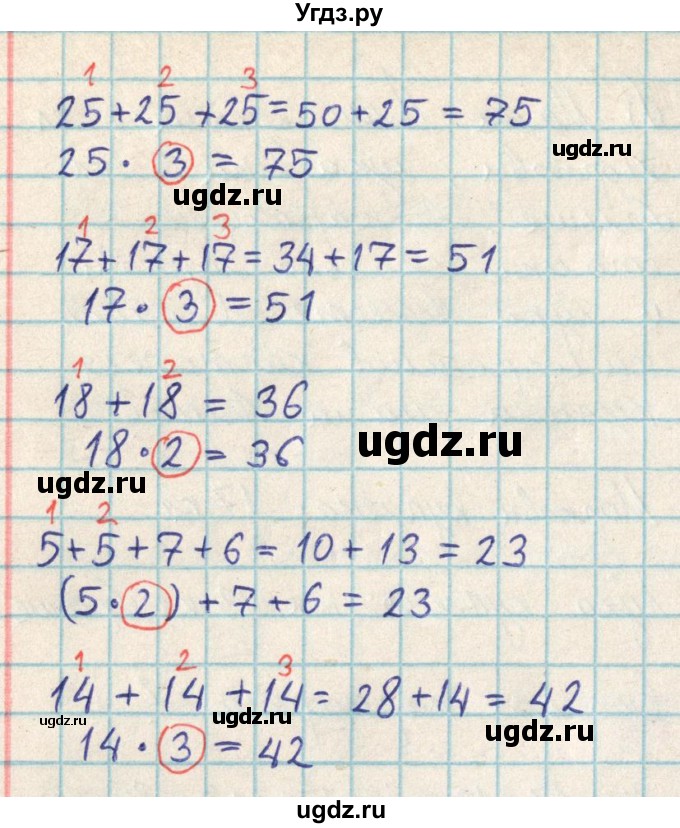 Угдз.ру
1 2 3
25+25+25=50+25=75
ugdz.ru
25·3=75
ugdz.ru
1 2 3
17+17+17=34+17=51
17·3=51
1 2
18+18=36
ugdz.ru
18·2=36
ugdz.ru
1 2
5+5+7+6=10+13=23
(5·2)+7+6=23
1 2 3
14+14+14=28+14=42
ugdz.ru
ugdz.ru
ugdz.ru
14·3=42
ugdz.ru